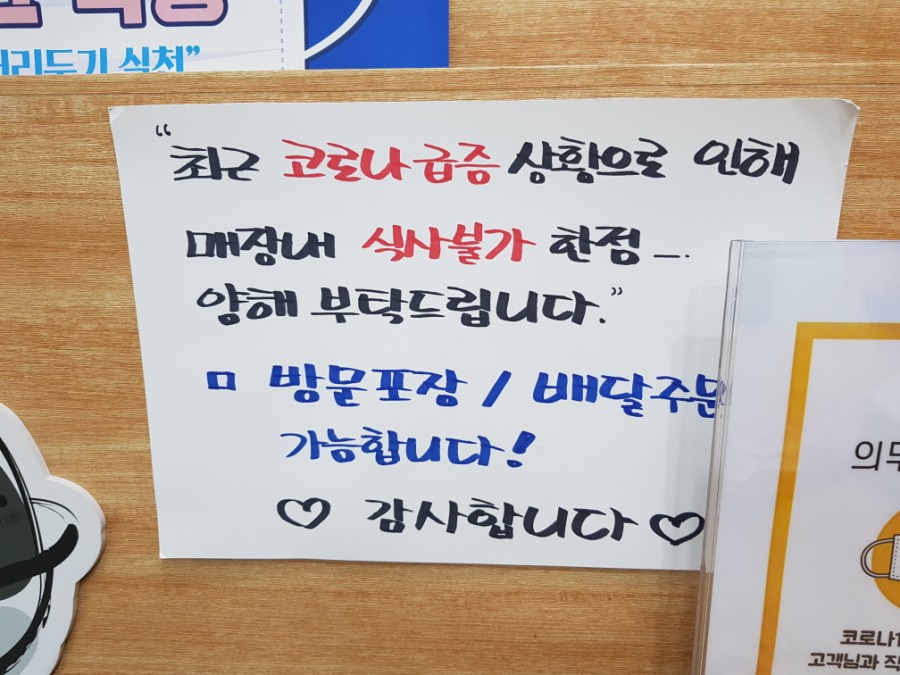 거리두기 실천”
“최근 코로나 급증 상황으로 인해
매장내 식사불가 한점...
양해 부탁드립니다.”
ㅁ 방문포장 / 배달주문
가능합니다!
♡ 감사합니다 ♡
코로나1
고객님과 직